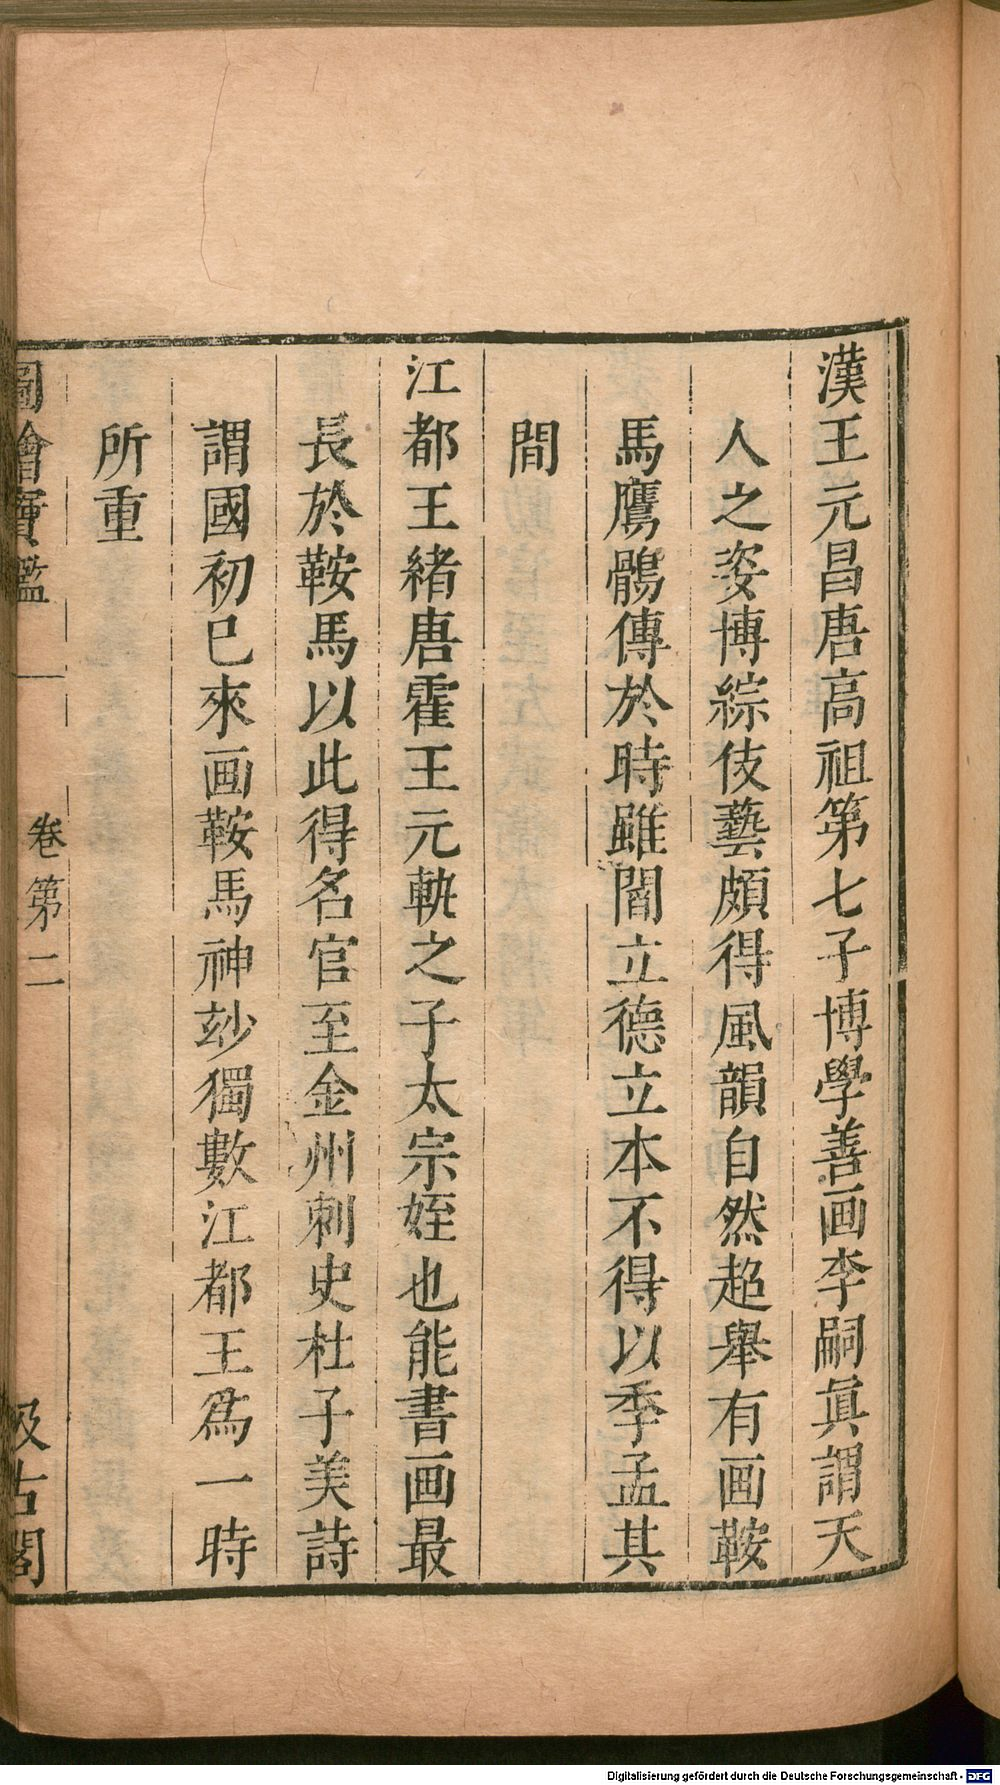 漢王元昌唐高祖第七子博學善画李嗣眞謂天
人之姿博綜伎藝頗得風韻自然超舉有画鞍
馬鷹鶻傳於時雖閻立德立本不得以季孟其
間
江都王緒唐霍王元軌之子太宗姪也能書画最
長於鞍馬以此得名官至金州刺史杜子美詩
謂國初已來画鞍馬神玅獨數江都王爲一時
所重
圖繪寶鑑
卷第二
汲古閣
Digitalisierung gefördert durch die Deutsche Forschungsgemeinschaft - DFG